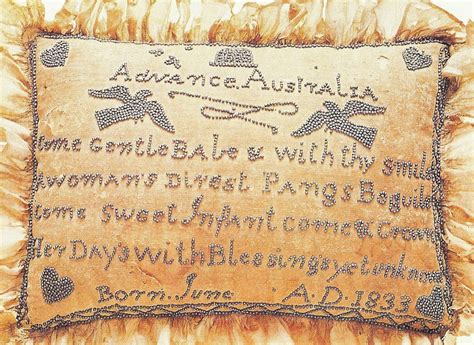 Advance.Australia
Come Gentle Babe & with thy smile
A Woman's Direst Pangs Beguile
Come Sweet Infant come & Crown
Her Day's with Blessings yet unknown
Born. June A.D. 1833